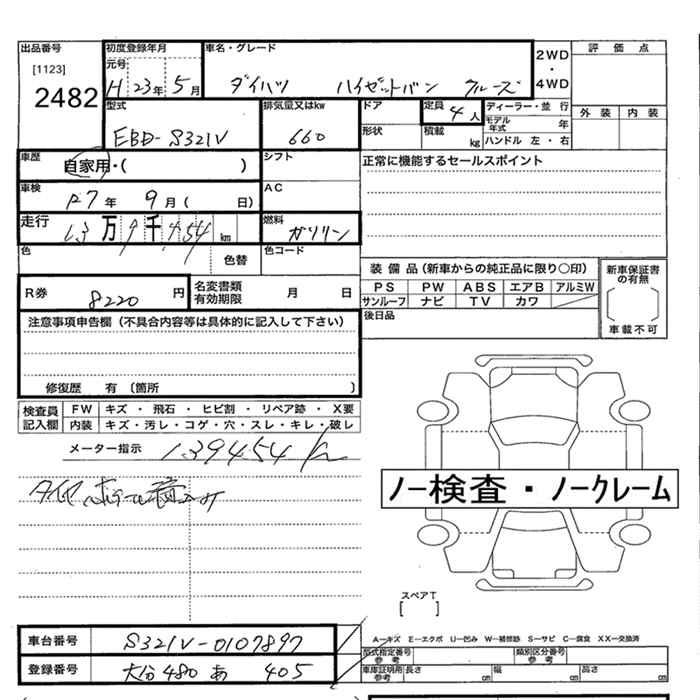 出品番号 初度登録年月 車名・グレード 2WD ・ 4WD 評価点
[1123] 元号
2482 H 23年 5月 ダイハツ ハイゼットバン クルーズ
型式 排気量又はkw ドア 定員 4人 ディーラー・並行 外装 内装
EBD-S321V 660 形状 積載 kg モデル年式 年
ハンドル 左・右
車歴 自家用・( ) シフト 正常に機能するセールスポイント
車検 R7年 9月( 日) AC
走行 13万9千454km 燃料 ガソリン
色 色替 色コード 装備品(新車からの純正品に限り○印) 新車保証書の有無
PS PW ABS エアB アルミW
R券 8220円 名変書類有効期限 月 日 サンルーフ ナビ TV カワ
車載不可
注意事項申告欄(不具合内容等は具体的に記入して下さい) 後日品
修復歴 有 (箇所 )
検査員記入欄 FW キズ・飛石・ヒビ割・リペア跡・X要
内装 キズ・汚レ・コゲ・穴・スレ・キレ・破レ
メーター指示 139454km
タイヤ
ノー検査・ノークレーム
スペアT
[ ]
車台番号 S321V-0107897 A―キズ E―エクボ U―凹み W―補修跡 S―サビ C―腐食 XX―交換済
型式指定番号 参考 類別区分番号 参考
登録番号 大分480 あ 405 車庫証明用参考 長さ cm 幅 cm 高さ cm